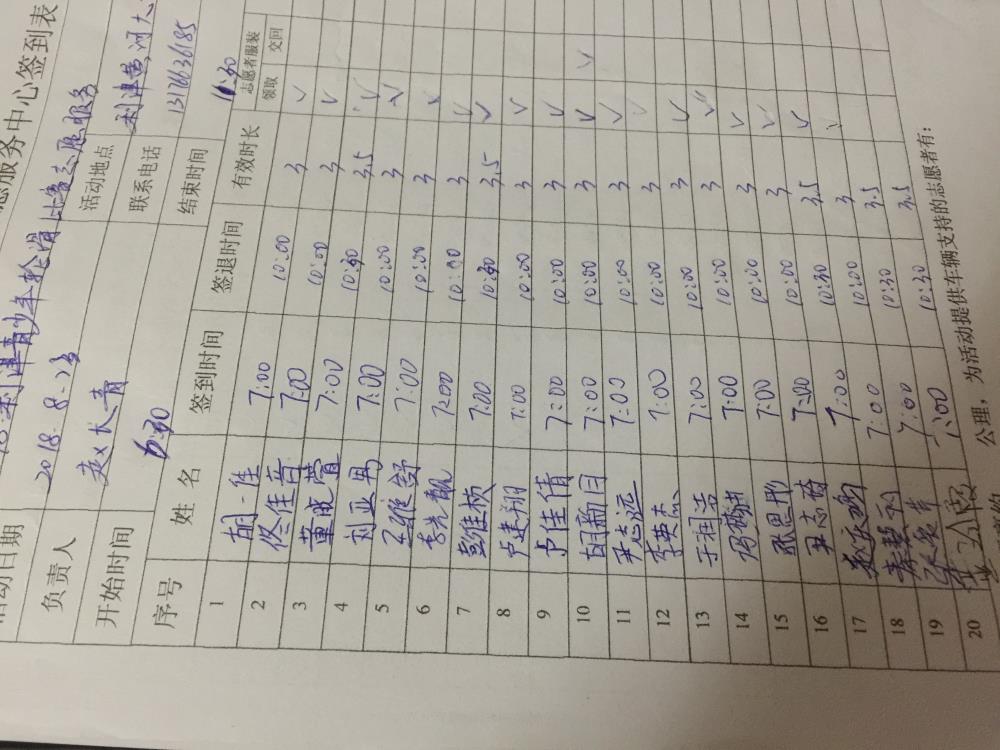 志愿服务中心签到表
青少年轮滑比赛志愿服务
活动日期 2018.8.23 活动地点 利津黄河大
负责人 赵长青 联系电话 13176636185
开始时间 6:30 结束时间 10:30
序号 姓名 签到时间 签退时间 有效时长 志愿者服装
领取 交回
1 胡一佳 7:00 10:00 3 √
2 佟佳音 7:00 10:00 3 √
3 董晟萱 7:00 10:30 3.5 √
4 刘亚男 7:00 10:00 3 √
5 王雅舒 7:00 10:00 3 √
6 7:00 10:00 3 √
7 彭维桢 7:00 10:30 3.5 √
8 卢建翔 7:00 10:00 3 √
9 卢佳倩 7:00 10:00 3 √
10 胡新同 7:00 10:00 3 √ √
11 尹志延 7:00 10:00 3 √
12 李英杰 7:00 10:00 3 √
13 于润浩 7:00 10:00 3 √
14 7:00 10:00 3 √
15 张思彤 7:00 10:00 3 √
16 尹志琦 7:00 10:30 3.5 √
17 7:00 10:00 3 √
18 秦慧云 7:00 10:30 3.5
19 7:00 10:30 3.5
20
为活动提供车辆支持的志愿者有:
公理,